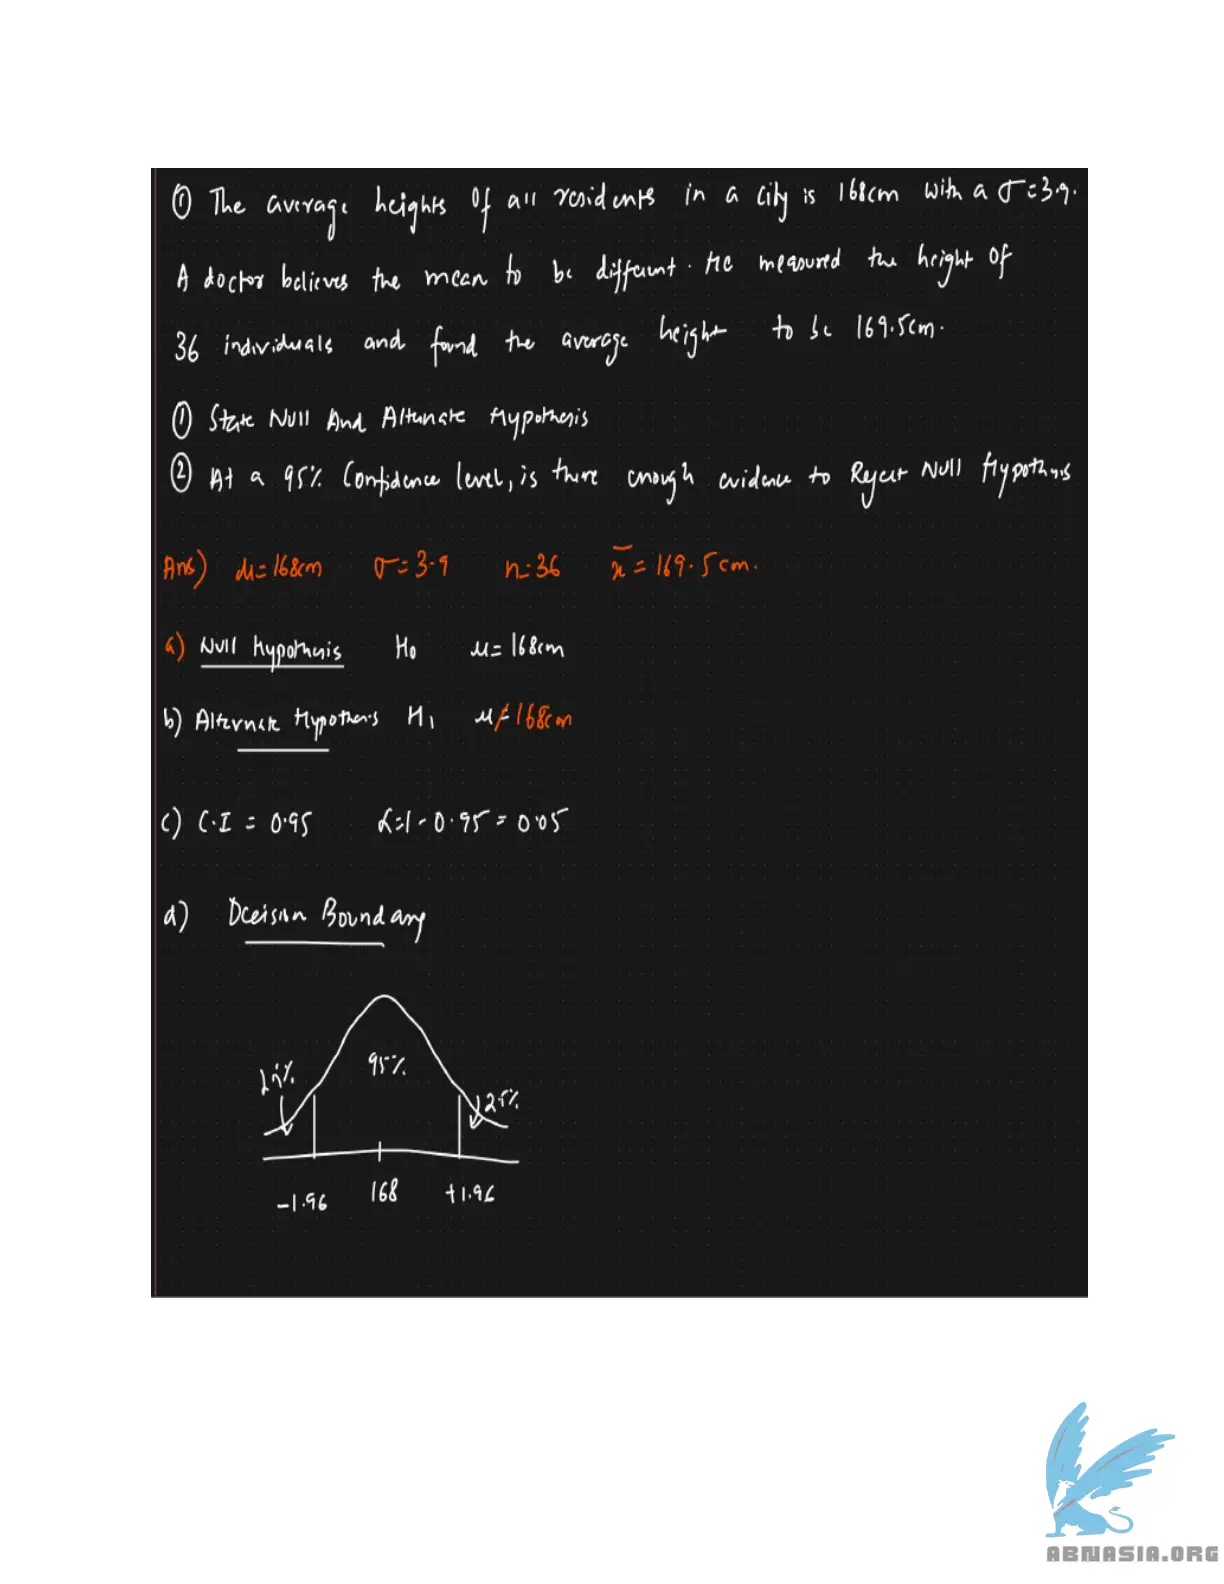 ① The average heights of all residents in a city is 168cm with a σ=3.9.
A doctor believes the mean to be different. He measured the height of
36 individuals and found the average height to be 169.5cm.
① State Null And Alternate Hypothesis
② At a 95% Confidence level, is there enough evidence to Reject Null Hypothesis
Ans) μ=168cm σ=3.9 n=36 x̄=169.5cm.
a) Null Hypothesis H₀ μ=168cm
b) Alternate Hypothesis H₁ μ≠168cm
c) C.I = 0.95 α=1-0.95=0.05
d) Decision Boundary
95%
2.5%
2.5%
-1.96 168 +1.96
ABNASIA.ORG